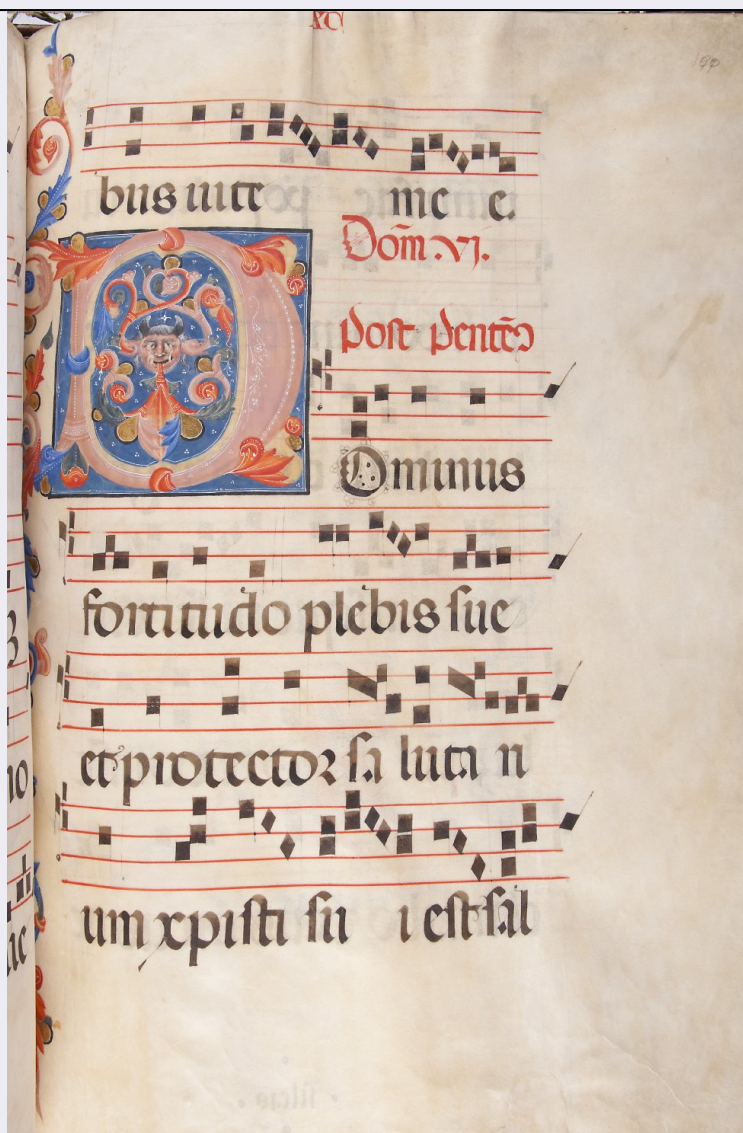 XC
bus uite me e.
Dom̄ .VI.
post pentec̄
Ominus
fortitudo plebis sue
et protector sa luta ri
um xpisti su i est sal